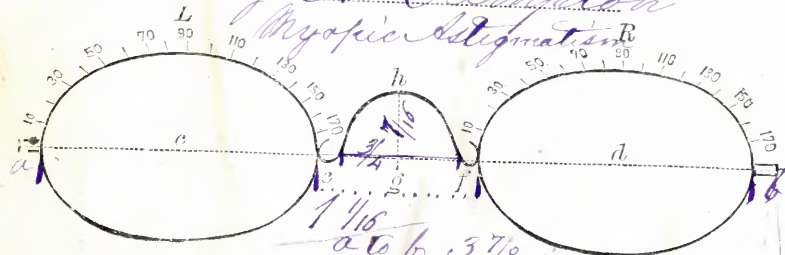 Myopic Astigmatism
L R
10 30 50 70 90 110 130 150 170
10 30 50 70 90 110 130 150 170
h
3/4 7/16
a c e g f d b
1 1/16
a to b 3 7/8